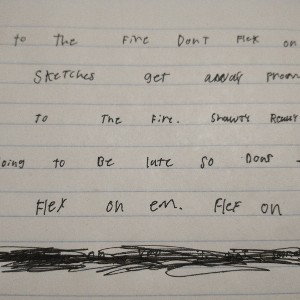 to The Fire Dont Flex on
Sketches get away from
To The Fire. Shawty Really
going to Be late So Dont
Flex on em. Flex on